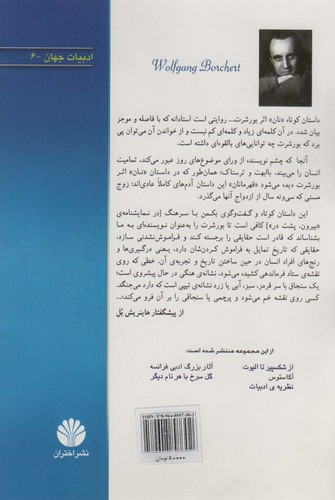 ادبیات جهان -۶۰
Wolfgang Borchert
داستان کوتاه «نان» اثر بورشرت... روایتی است استادانه که با فاصله و موجز
بیان شده، در آن کلمه‌ای زیاد و کلمه‌ای کم نیست و از خواندن آن می‌توان پی
برد که بورشرت چه توانایی‌های بالقوه‌ای داشته است.
آنجا که چشم نویسنده از ورای موضوع‌های روز عبور می‌کند، تمامیت
انسان را می‌بیند، باابهت و ترسناک؛ همان‌طور که در داستان «نـان» اثـر
بورشرت دیده می‌شود «قهرمانان» این داستان آدم‌های کاملاً عادی‌اند؛ زوج
مسنی که سی‌ونه سال از ازدواج آنها می‌گذرد.
این داستان کوتاه و گفت‌وگوی بکمن با سرهنگ [در نمایشنامه‌ی
«بیرون، پشت در»] کافی است تا بورشرت را به‌عنوان نویسنده‌ای به ما
بشناساند که قادر است حقایقی را برجسته کند و فراموش‌نشدنی سازد،
حقایقی که تاریخ تمایل به فراموش کردن‌شان دارد، یعنی درگیری‌ها و
رنج‌های افراد انسان در حین ساختن تاریخ و تجربه‌ی آن. خطی که روی
نقشه‌ی ستاد فرماندهی کشیده می‌شود، نشانه‌ی هنگی در حال پیشروی است؛
یک سنجاق با سر قرمز، سبز، آبی یا زرد نشانه‌ی تیپی است که دارد می‌جنگد.
کسی روی نقشه خم می‌شود و پرچمی یا سنجاقی را بر آن فرو می‌کند...
از پیشگفتار هاینریش بُل
از این مجموعه منتشر شده است:
از شکسپیر تا الیوت
آثار بزرگ ادبی فرانسه
آکاستوس
گل سرخ با هر نام دیگر
نظریه ی ادبیات
۵۰۰۰۰ تومان
نشر اختران